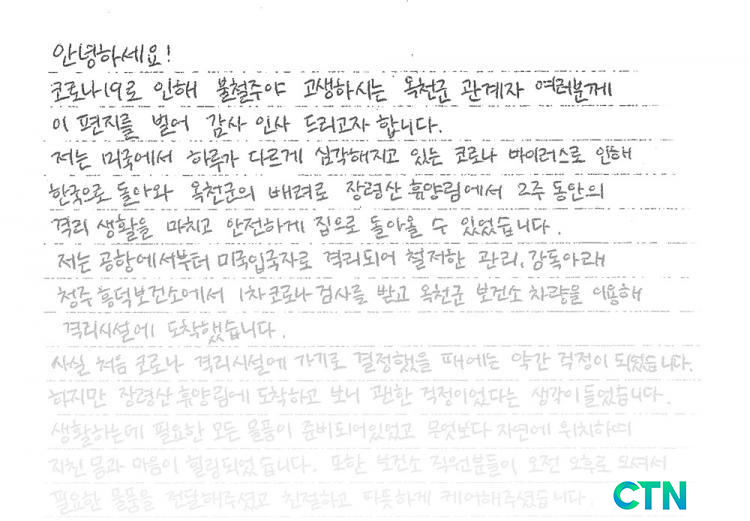 안녕하세요!
코로나19로 인해 불철주야 고생하시는 옥천군 관계자 여러분께
이 편지를 빌어 감사 인사 드리고자 합니다.
저는 미국에서 하루가 다르게 심각해지고 있는 코로나 바이러스로 인해
한국으로 돌아와 옥천군의 배려로 장령산 휴양림에서 2주 동안의
격리 생활을 마치고 안전하게 집으로 돌아올 수 있었습니다.
저는 공항에서부터 미국입국자로 격리되어 철저한 관리, 감독아래
청주 흥덕보건소에서 1차 코로나 검사를 받고 옥천군 보건소 차량을 이용해
격리시설에 도착했습니다.
사실 처음 코로나 격리시설에 가기로 결정했을 때에는 약간 걱정이 되었습니다.
하지만 장령산 휴양림에 도착하고 보니 괜한 걱정이었다는 생각이 들었습니다.
생활하는데 필요한 모든 물품이 준비되어있었고 무엇보다 자연에 위치하여
지친 몸과 마음이 힐링되었습니다. 또한 보건소 직원분들이 오전 오후로 오셔서
필요한 물품을 전달해주셨고 친절하고 따뜻하게 케어해주셨습니다.
CTN